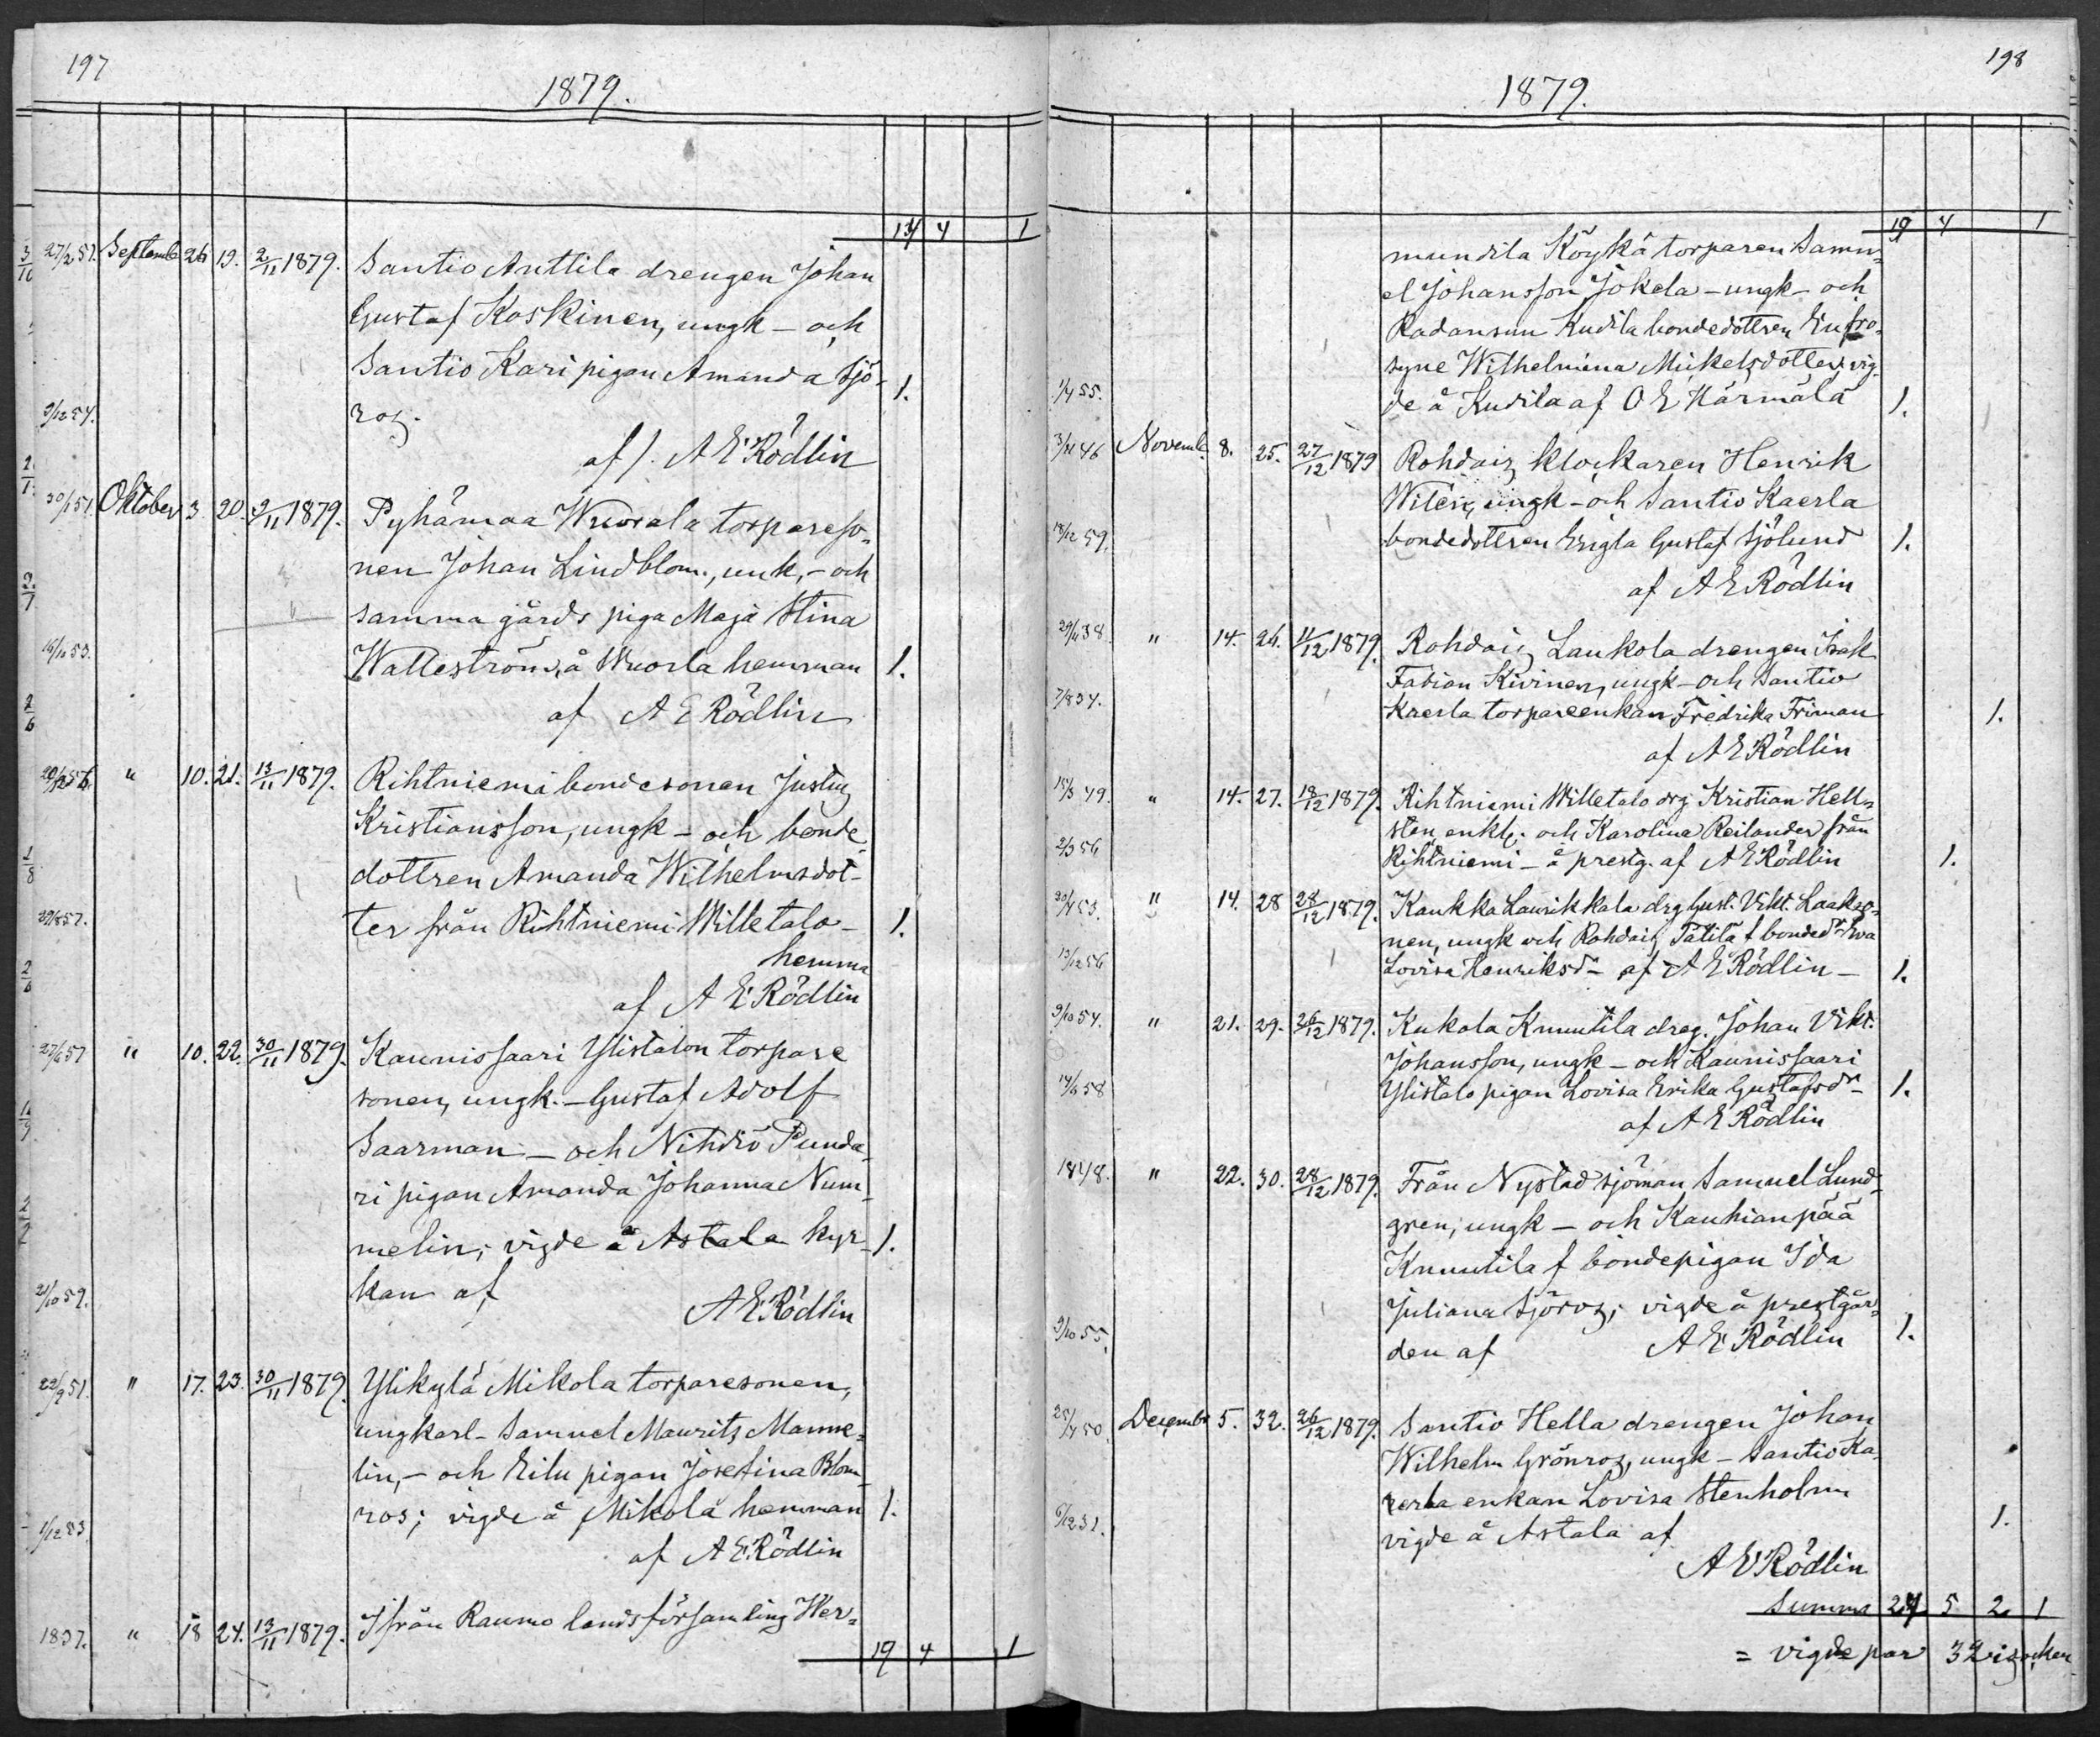 197
1879.
14 4 1
27/2 51. Septemb 26 19. 2/11 1879. Santio Anttila drengen Johan
Gustaf Koskinen, ungk - och
Santio Kari pigan Amanda Sjö-
9/12 54. ros. 1.
af/. A E Rödlin
30/1 51. Oktober 3. 20. 2/11 1879. Pyhämaa Wuorela torpareso-
nen Johan Lindblom, unk, - och
samma gårds piga Maja Stina
16/10 53. Walleström, å Wuorla hemman 1.
af A E Rödlin
20/12 56. " 10. 21. 13/11 1879. Rihtniemi bondesonen Justus
Kristiansson, ungk - och bonde
dottren Amanda Wilhelmsdot-
29/8 57. ter från Rihtniemi Willetalo - 1.
hemma
af A E Rödlin
27/6 57 " 10. 22. 30/11 1879. Kaunissaari Ylistalon torpare
sonen, ungk. - Gustaf Adolf
Saarman - och Nihdiö Punda-
ri pigan Amanda Johanna Num-
melin; vigde å Astala kyr- 1.
21/10 59. kan af
A E Rödlin
22/9 51. " 17. 23. 30/11 1879. Ylikylä Mikola torparesonen,
ungkarl - Samuel Maurits Manne-
lin, - och Eilu pigan Josefina Blom-
1/12 53. ros; vigde å Mikola hemman 1.
af A E Rödlin
1837. " 18 24. 13/11 1879. Ifrån Raumo landsförsamling Her-
19 4 1
198
1879.
19 4 1
mundila Köykä torparen Samu-
el Johansson Jokela - ungk - och
Radansuu Kudila bondedottren Eufro-
syne Wilhelmina Mickelsdotter; vig-
1/4 55. de å Kudila af O E Härmälä 1.
3/11 46 Novemb. 8. 25. 27/12 1879 Rohdais klockaren Henrik
Wilén, ungk - och Santio Kaerla
18/12 59. bondedottren Erigta Gustaf Sjölund 1.
af A E Rödlin
29/11 38. " 14. 26. 11/12 1879. Rohdais Laukola drengen Isak
Fabian Kivinen, ungk - och Santio
7/8 34. Kaerla torpareenkan Fredrika Friman 1.
af A E Rödlin
15/3 49. " 14. 27. 18/12 1879. Rihtniemi Willetalo drg Kristian Hell-
sten enkl. och Karolina Reilander från
2/3 56 Rihtniemi - å prestg. af A E Rödlin 1.
30/4 53. " 14. 28 28/12 1879. Kaukka Laurikkala drg Gust. Vikt. Laakso-
nen, ungk och Rohdais Tätilä f bondedr Eva
13/12 56 Lovisa Henriksdr - af A E Rödlin - 1.
9/10 54. " 21. 29. 26/12 1879. Kukola Knuutila dreg. Johan Vikt.
Johansson, ungk - och Kaunissaari
14/6 58 Ylistalo pigan Lovisa Erika Gustafsdr - 1.
af A E Rödlin
1848. " 22. 30. 28/12 1879. Från Nystad sjöman Samuel Lund-
gren, ungk - och Kauhianpää
Knuutila f bondepigan Ida
Juliana Sjöros; vigde å prestgår-
9/10 55. den af A E Rödlin 1.
25/4 50. Decembr 5. 32. 26/12 1879. Santio Hella drengen Johan
Wilhelm Grönros, ungk - Santio Ka-
erla enkan Lovisa Stenholm
6/12 31. vigde å Astala af 1.
A E Rödlin
Summa 24 5 2 1
= vigde par 32 i socken